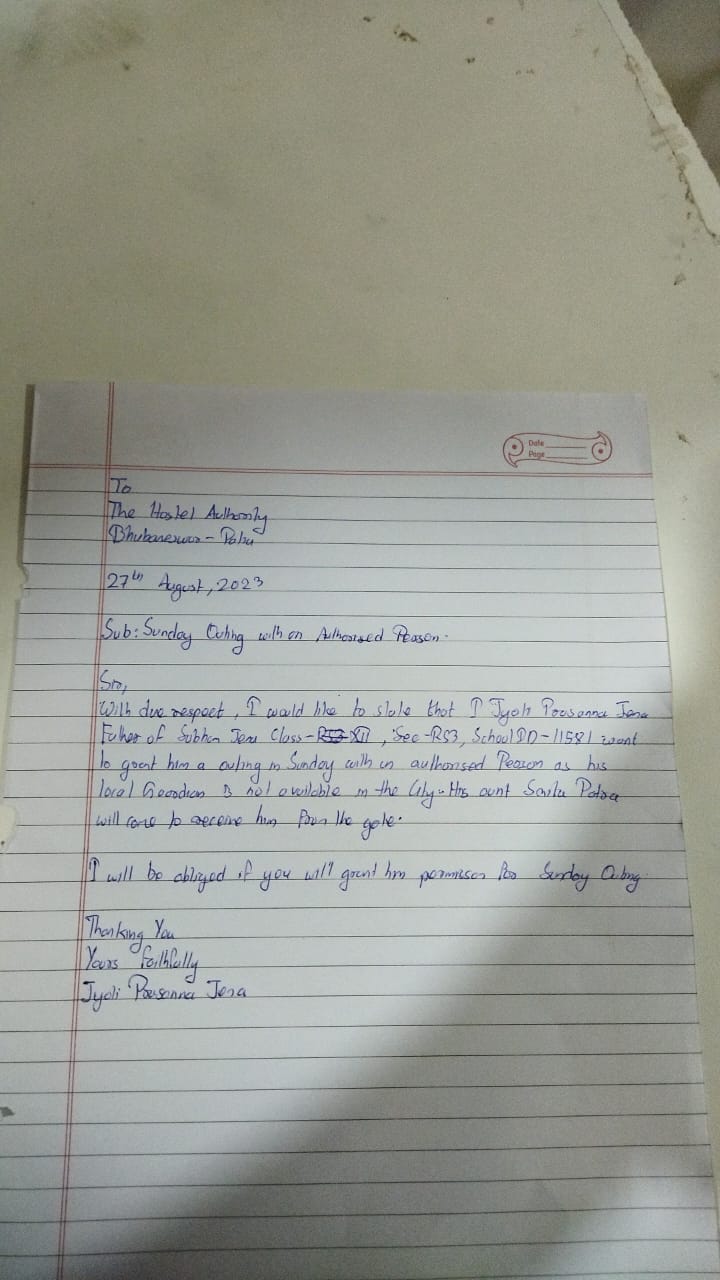 Date
Page
To
The Hostel Authority
Bhubaneswar - Patia
27th August, 2023
Sub: Sunday Outing with an Authorised Person.
Sir,
With due respect, I would like to state that I Jyoti Prasanna Jena
Father of Subham Jena Class - XII, Sec - RS3, School ID - 11581 want
to grant him a outing in Sunday with an authorised Person as his
local Guardian is not available in the City. His aunt Patra
will come to receive him from the gate.
I will be obliged if you will grant him permission for Sunday Outing
Thanking You
Yours Faithfully
Jyoti Prasanna Jena